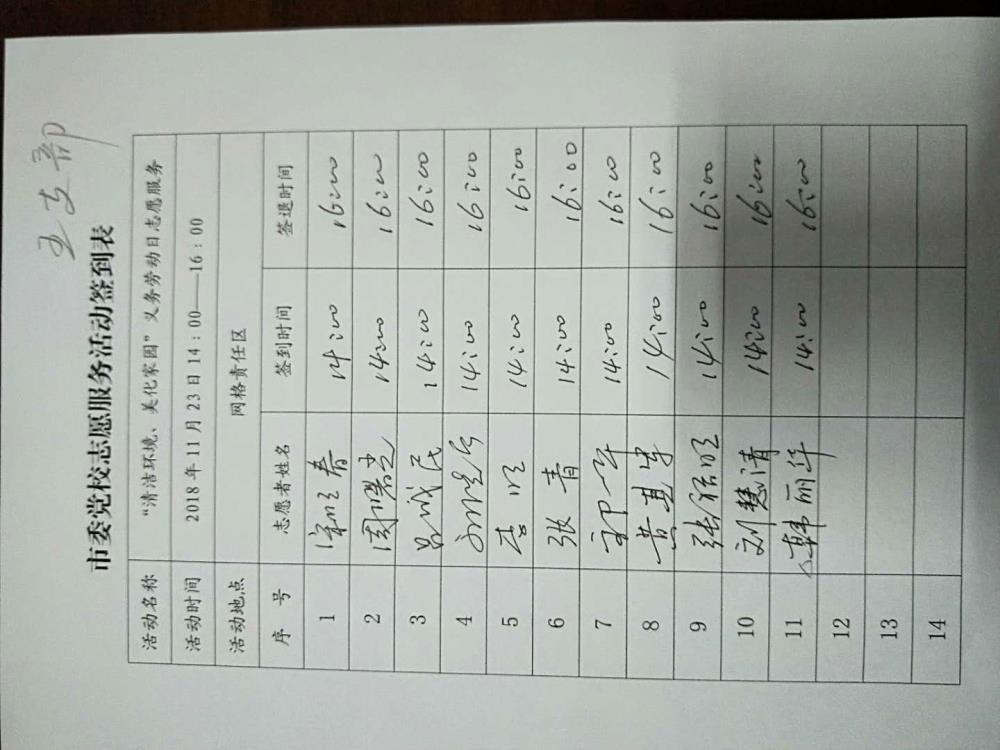 五支部
市委党校志愿服务活动签到表
活动名称 “清洁环境、美化家园”义务劳动日志愿服务
活动时间 2018年11月23日14:00——16:00
活动地点 网格责任区
序号 志愿者姓名 签到时间 签退时间
1 14:00 16:00
2 14:00 16:00
3 吕成民 14:00 16:00
4 14:00 16:00
5 李明 14:00 16:00
6 张青 14:00 16:00
7 14:00 16:00
8 黄其军 14:00 16:00
9 14:00 16:00
10 刘慧清 14:00 16:00
11 韩丽华 14:00 16:00
12
13
14